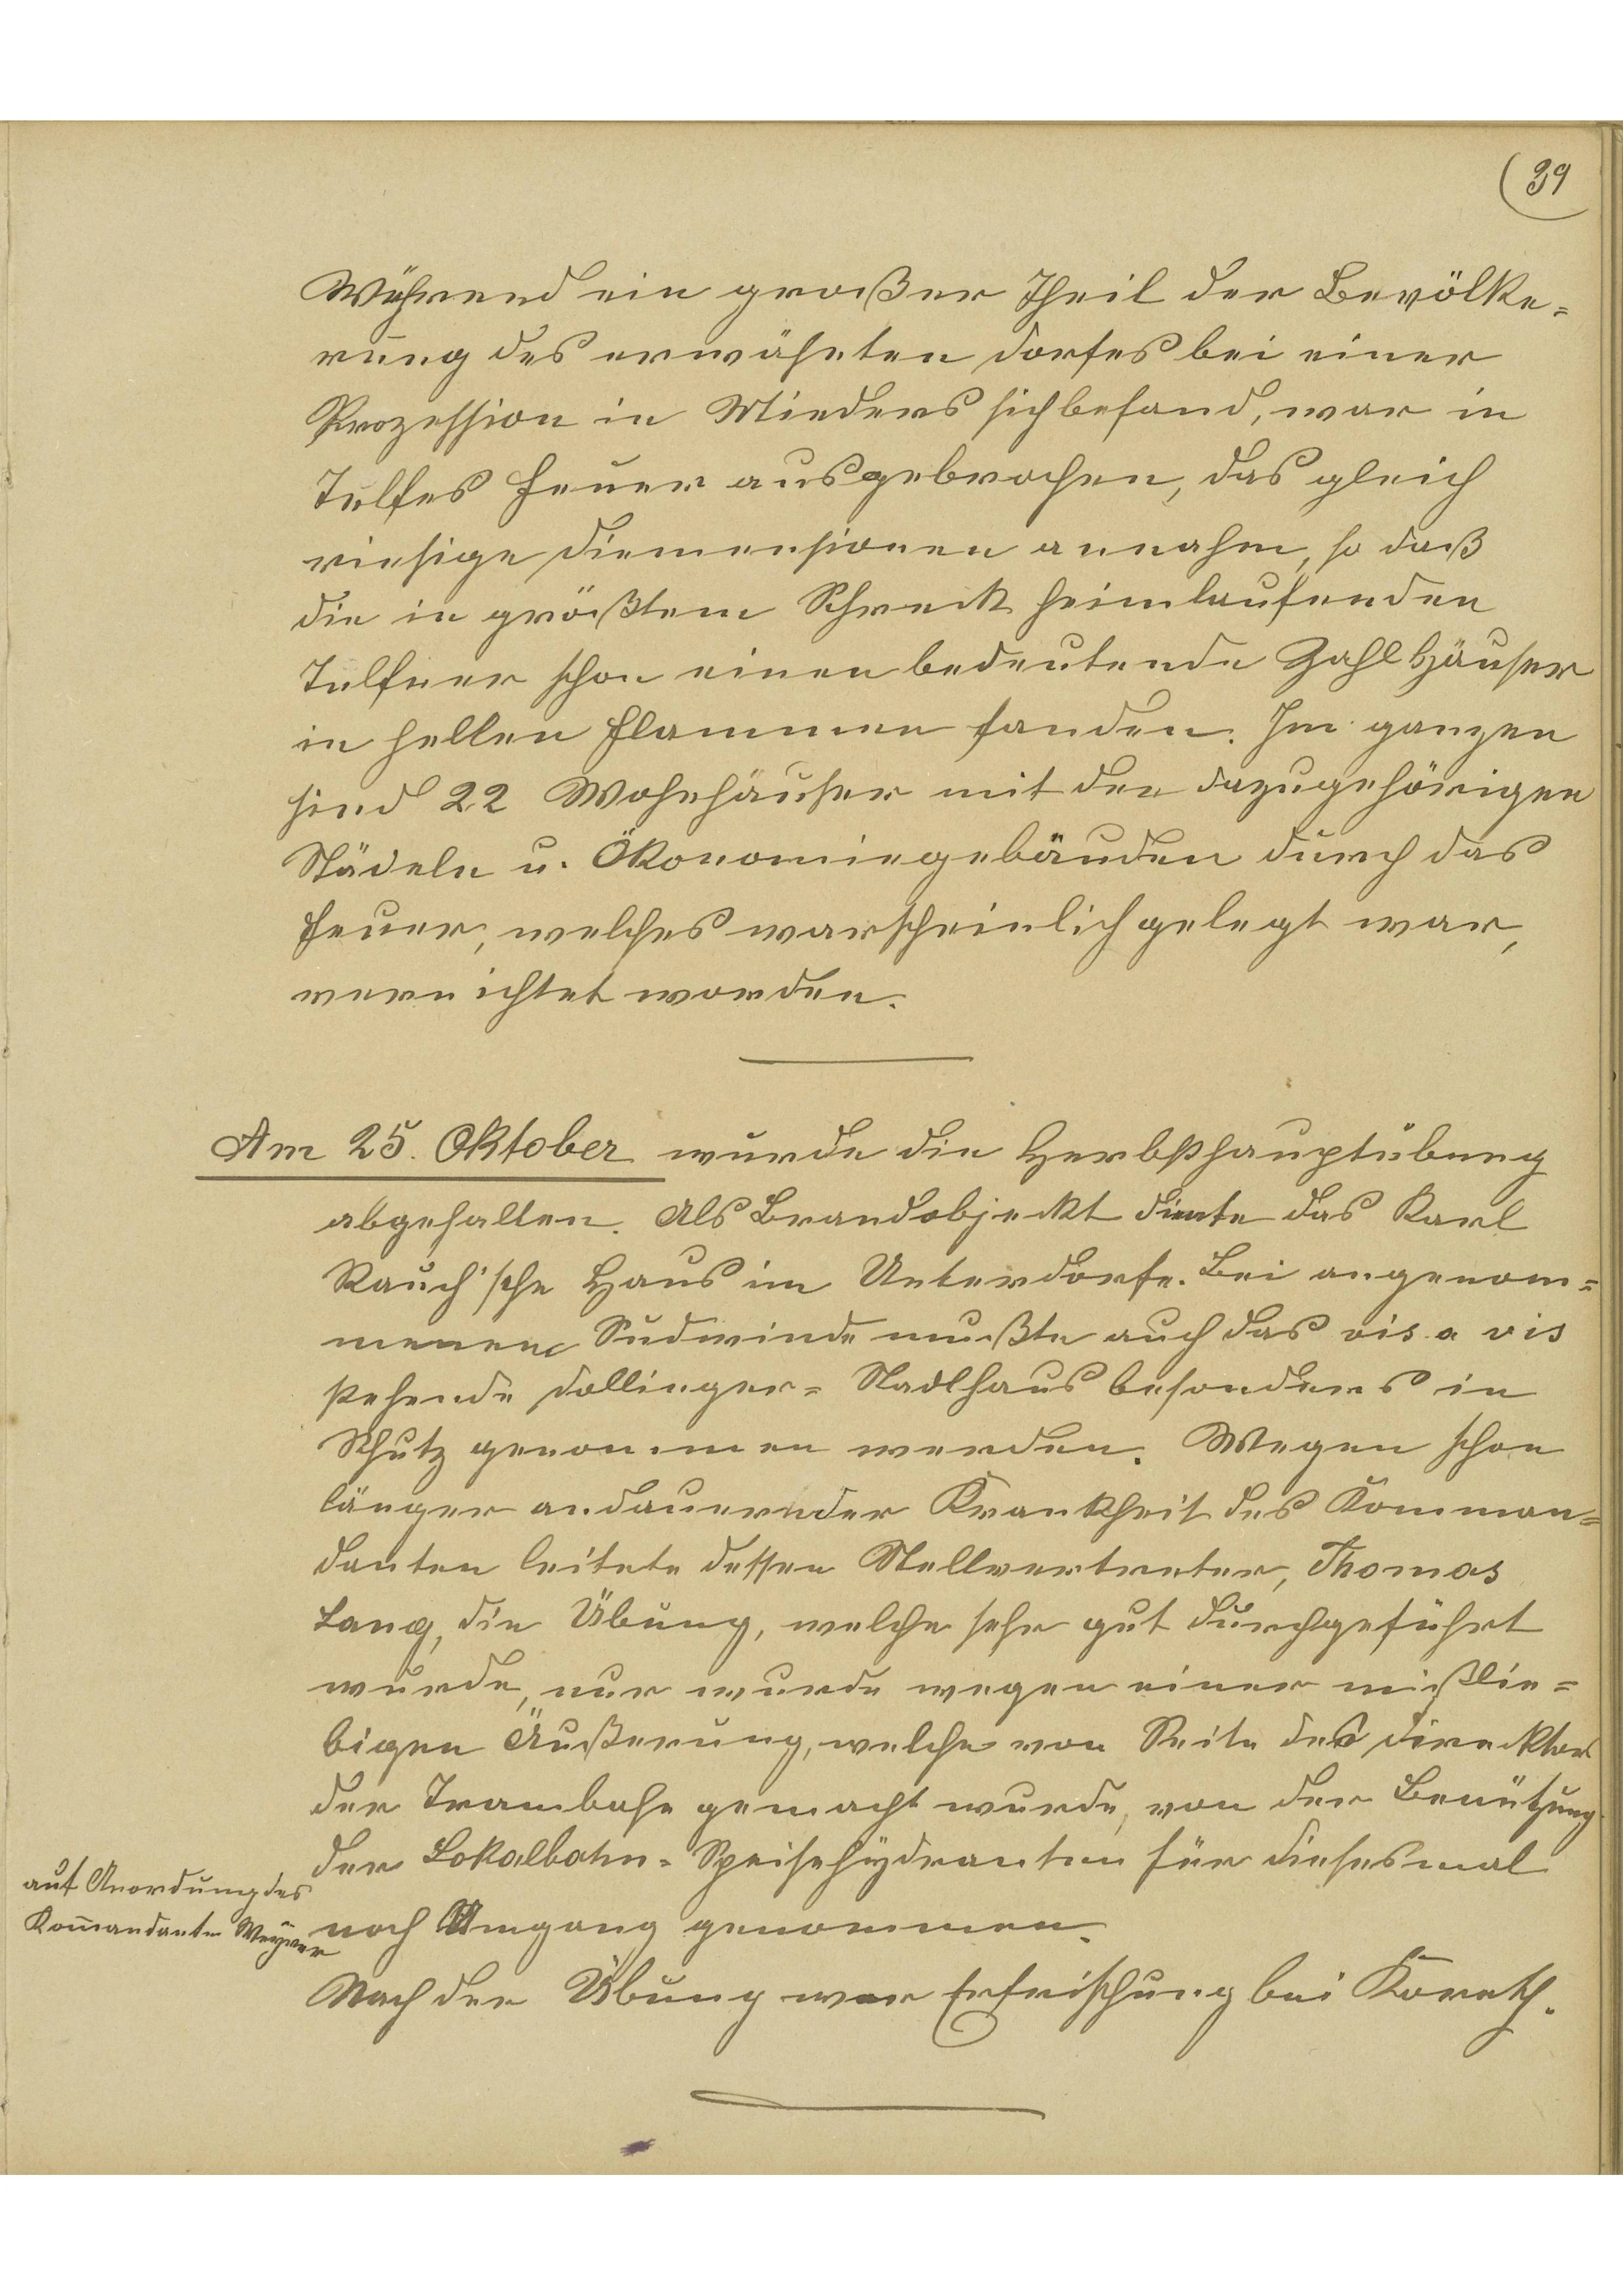 39
Während ein großer Theil der Bevölke=
rung des erwähnten Dorfes bei einer
Prozession in Mieders sich befand, war in
Tulfes Feuer ausgebrochen, das gleich
riesige Diemensionen annahm, so daß
die in größtem Schreck heimlaufenden
Tulfner schon einen bedeutende Zahl Häuser
in hellen Flammen fanden. Im ganzen
sind 22 Wohnhäuser mit den dazugehörigen
Städeln u. Ökonomiegebäuden durch das
Feuer, welches warscheinlich gelegt war,
vernichtet worden.
Am 25. Oktober wurde die Herbsthauptübung
abgehalten. Als Brandobjeckt diente das Karl
Rauch'sche Haus im Unterdorfe. Bei angenom=
menen Südwinde mußte auch das vis a vis
stehende Dollinger=Stadlhaus besonders in
Schutz genommen werden. Wegen schon
länger andauernder Krankheit des Komman=
danten leitete dessen Stellvertreter, Thomas
Lang, die Übung, welche sehr gut durchgeführt
wurde, nur wurde wegen einer mißlie=
bigen Äußerung, welche von Seite des Direcktors
der Trambahn gemacht wurde, von der Benützung
der Lokalbahn=Speisehydranten für diesesmal
auf Anordnung des
Kommandanten
noch Umgang genommen.
Nach der Übung war Erfrischung bei Koreth.